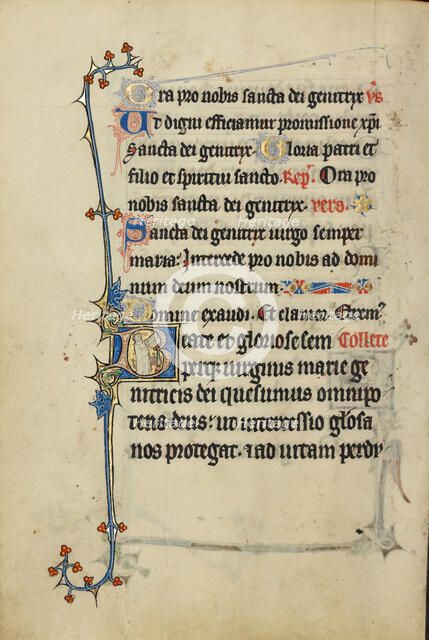 Ora pro nobis sancta dei genitryx v̄s
Ut digni efficiamur promissione xp̄i
Sancta dei genitryx. Gloria patri et
filio et spiritui sancto. Resp̄. Ora pro
nobis sancta dei genitryx. vers.
Sancta dei genitryx uirgo semper
maria. Intercede pro nobis ad domi
num deum nostrum.
Domine exaudi. Et clamor. Orem9
Beate et gloriose sem Collecte
perque uirginis marie ge
nitricis dei quesumus omnipo
tens deus. ut intercessio glosa
nos protegat. & ad uitam perdu
Heritage